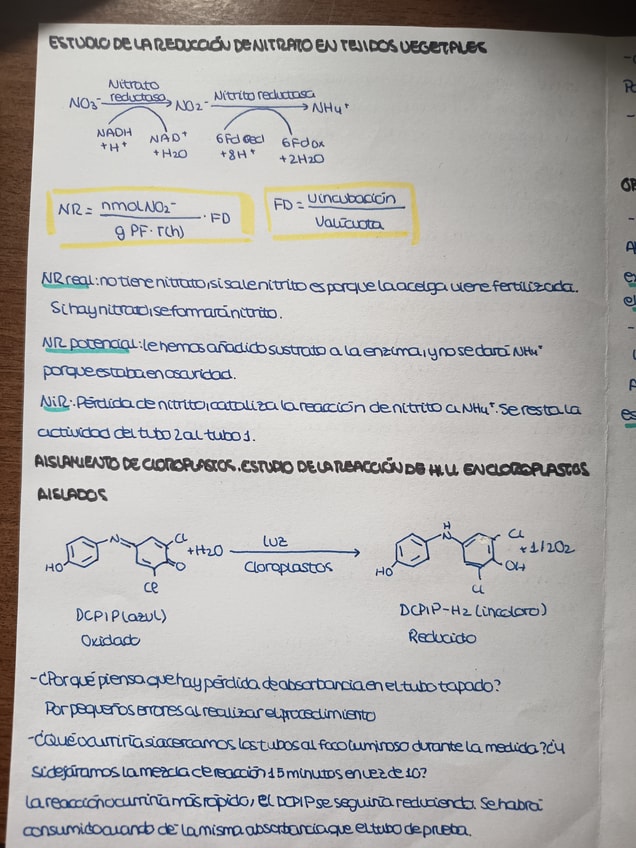 ESTUDIO DE LA REDUCCIÓN DE NITRATO EN TEJIDOS VEGETALES
Nitrato reductasa Nitrito reductasa
NO3- → NO2- → NH4+
NADH +H+ NAD+ +H2O 6Fd red +8H+ 6Fd ox +2H2O
NR = nmol NO2- / g PF · T(h) · FD
FD = V incubación / V alícuota
NR real: no tiene nitrato, si sale nitrito es porque la acelga viene fertilizada.
Si hay nitrato, se formará nitrito.
NR potencial: le hemos añadido sustrato a la enzima, y no se dará NH4+
porque estaba en oscuridad.
NiR: Pérdida de nitrito, cataliza la reacción de nitrito a NH4+. Se resta la
actividad del tubo 2 al tubo 1.
AISLAMIENTO DE CLOROPLASTOS. ESTUDIO DE LA REACCIÓN DE HILL EN CLOROPLASTOS
AISLADOS
HO N Cl O Cl +H2O luz Cloroplastos HO H N Cl OH Cl +1/2O2
DCPIP (azul) DCPIP-H2 (incoloro)
Oxidado Reducido
- ¿Por qué piensa que hay pérdida de absorbancia en el tubo tapado?
Por pequeños errores al realizar el procedimiento
- ¿Qué ocurriría si acercamos los tubos al foco luminoso durante la medida? ¿Y
si dejáramos la mezcla de reacción 15 minutos en vez de 10?
La reacción ocurriría más rápido, el DCPIP se seguiría reduciendo. Se habrá
consumido cuando dé la misma absorbancia que el tubo de prueba.